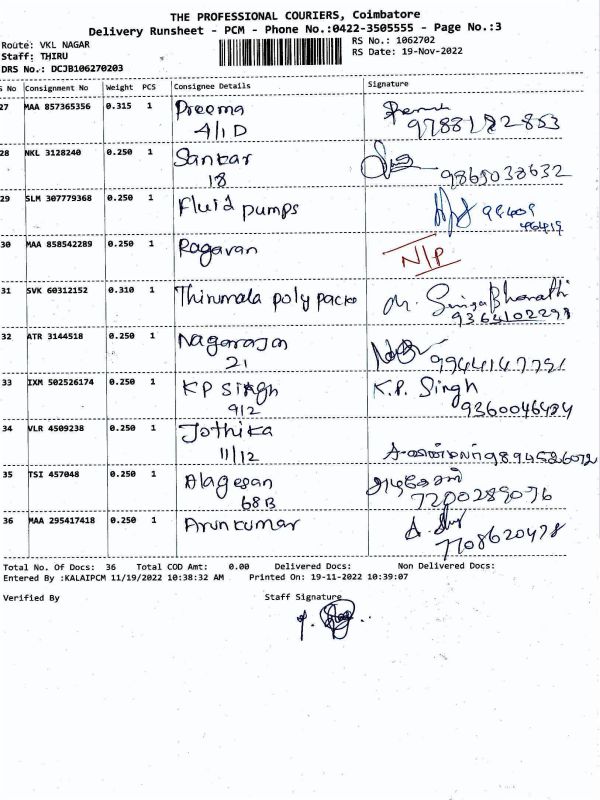 THE PROFESSIONAL COURIERS, Coimbatore
Delivery Runsheet - PCM - Phone No.:0422-3505555 - Page No.:3
Route: VKL NAGAR
RS No.: 1062702
Staff: THIRU
RS Date: 19-Nov-2022
DRS No.: DCJB106270203
S No Consignment No Weight PCS Consignee Details Signature
27 MAA 857365356 0.315 1 Preema
4/1 D 9788182853
28 NKL 3128240 0.250 1 Sankar
18 9865038632
29 SLM 307779368 0.250 1 Fluid pumps
30 MAA 858542289 0.250 1 Ragavan N/P
31 SVK 60312152 0.310 1 Thirumala poly packs
9364102291
32 ATR 3144518 0.250 1 Nagarajan
21 9944147791
33 IXM 502526174 0.250 1 KP Singh K.P. Singh
9/2 9360046484
34 VLR 4509238 0.250 1 Jothika
11/12 9894526072
35 TSI 457048 0.250 1 Alagesan
68B 7200289076
36 MAA 295417418 0.250 1 Arunkumar
7708620478
Total No. Of Docs: 36 Total COD Amt: 0.00 Delivered Docs: Non Delivered Docs:
Entered By :KALAIPCM 11/19/2022 10:38:32 AM Printed On: 19-11-2022 10:39:07
Verified By Staff Signature